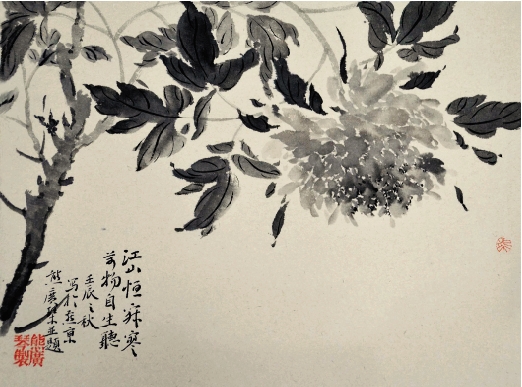 江山恒寂寥
萬物自生聽
壬辰之秋
寫於燕京
熊廣琴並題
熊廣
琴製